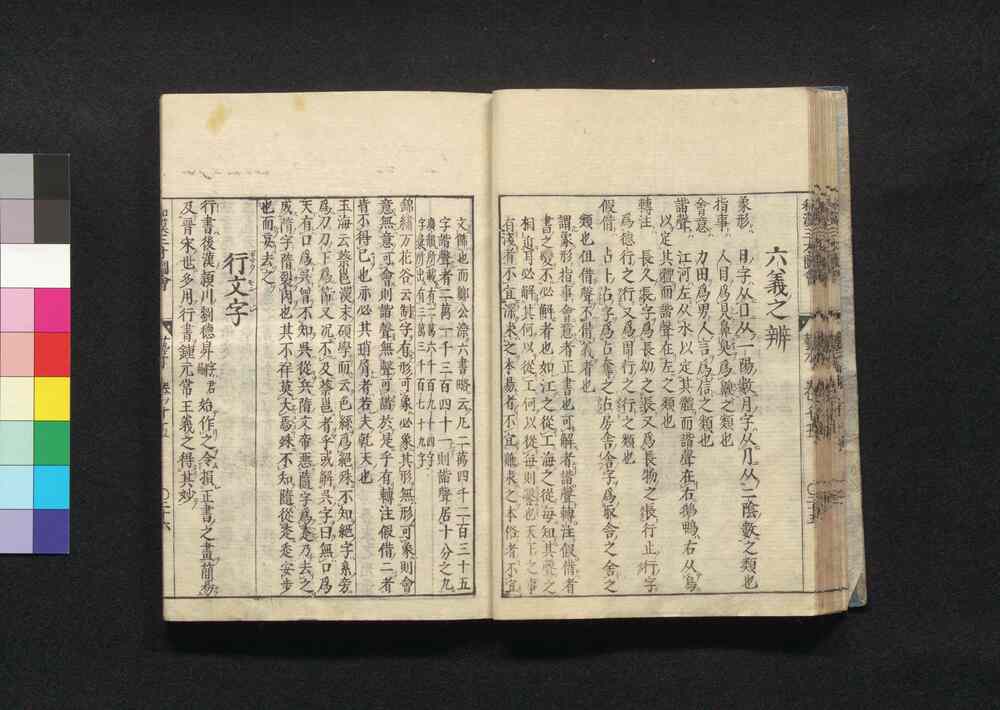 六義之辨
象形 日字从口从一陽數月字从月从二陰數之類也
指事 人目爲見鼻臭爲齅之類也
會意 力田爲男人言爲信之類也
諧聲 江河左从水以定其體而諧聲在右鵝鴨右从鳥
以定其體而諧聲在左之類也
轉注 長久長字爲長幼之長又爲長物之長行止行字
爲德行之行又爲周行之行之類也
假借 占卜占字爲占奪之占房舎舎字爲取舎之舎之
類也但借聲不借義者也
謂象形指事會意者正書也可解者諧聲轉注假借者
書之變不必解者也如江之從工海之從每知其聲之
相近耳必解其何以從工何以從每則鑿也天王之事
有淺者不宜深求之本易者不宜難求之本俗者不宜
文儒也而鄭公漁六書略云凢二萬四千二百三十五
字諧聲者二萬一千三百四十一則諧聲居十分之九
廣韻所載有二萬六千一百九十四字
字彙所出有三萬三千一百七十九字
錦繡万花谷云制字有形可象必象其形無形可象則會
意無意可會則諧聲無聲可諧於是乎有轉注假借二者
肯不得已也亦必其琑屑者若夫乾天也
玉海云蔡邕漢末碩學而云色絲爲絕殊不知絕字糸旁
爲刀刀下爲又沉不及蔡邕者乎或解呉字曰無口爲
天有口爲呉曾不知呉從兵隋文帝惡隨字爲辵乃去之
成隋字隋裂肉也其不祥莫大焉殊不知隨從辵辵安步
也而妄去之
行文字
行書後漢潁川劉德昇字君嗣始作之令損正書之畫簡易
及晋宋世多用行書鍾元常王羲之得其妙